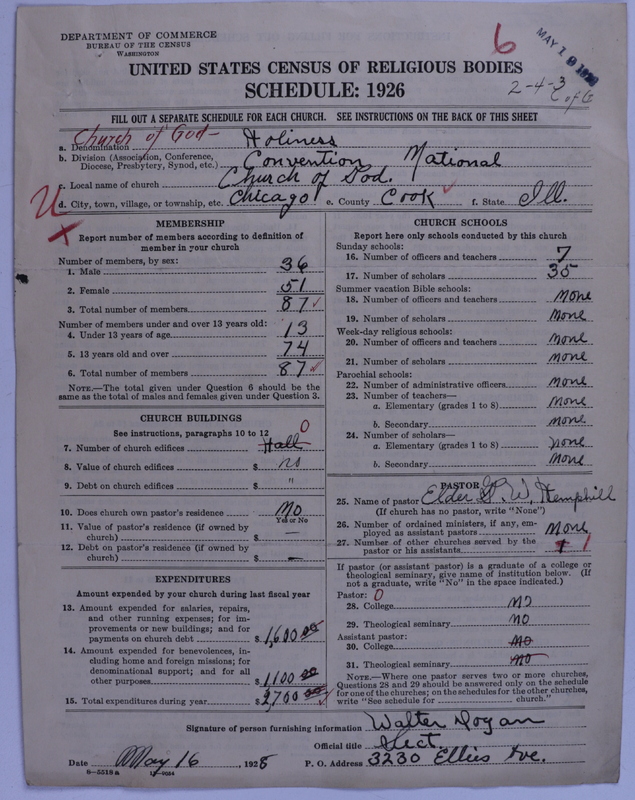 DEPARTMENT OF COMMERCE
BUREAU OF THE CENSUS
WASHINGTON
6
MAY 19 1928
UNITED STATES CENSUS OF RELIGIOUS BODIES
SCHEDULE: 1926
2-4-3
C of G
FILL OUT A SEPARATE SCHEDULE FOR EACH CHURCH. SEE INSTRUCTIONS ON THE BACK OF THIS SHEET
Church of God-
a. Denomination Holiness
b. Division (Association, Conference, Diocese, Presbytery, Synod, etc.) Convention National
c. Local name of church Church of God.
d. City, town, village, or township, etc. Chicago e. County Cook ✓ f. State Ill.
MEMBERSHIP
Report number of members according to definition of
member in your church
Number of members, by sex:
1. Male 36
2. Female 51
3. Total number of members 87 ✓
Number of members under and over 13 years old:
4. Under 13 years of age 13
5. 13 years old and over 74
6. Total number of members 87 ✓
NOTE.—The total given under Question 6 should be
same as the total of males and females given under Question 3.
CHURCH BUILDINGS
See instructions, paragraphs 10 to 12 0
7. Number of church edifices Hall
8. Value of church edifices $ no
9. Debt on church edifices $ "
10. Does church own pastor's residence No
Yes or No
11. Value of pastor's residence (if owned by
church) $ —
12. Debt on pastor's residence (if owned by
church) $ —
EXPENDITURES
Amount expended by your church during last fiscal year
13. Amount expended for salaries, repairs,
and other running expenses; for im-
provements or new buildings; and for
payments on church debt $ 1,600 00
14. Amount expended for benevolences, in-
cluding home and foreign missions; for
denominational support; and for all
other purposes $ 1100 00
15. Total expenditures during year $ 2,700 00 ✓
CHURCH SCHOOLS
Report here only schools conducted by this church
Sunday schools:
16. Number of officers and teachers 7
17. Number of scholars 35
Summer vacation Bible schools:
18. Number of officers and teachers None
19. Number of scholars None
Week-day religious schools:
20. Number of officers and teachers None
21. Number of scholars None
Parochial schools:
22. Number of administrative officers None
23. Number of teachers—
a. Elementary (grades 1 to 8) None
b. Secondary None
24. Number of scholars—
a. Elementary (grades 1 to 8) None
b. Secondary None
PASTOR
25. Name of pastor Elder W. Hemphill
(If church has no pastor, write "None")
26. Number of ordained ministers, if any, em-
ployed as assistant pastors None
27. Number of other churches served by the
pastor or his assistants 1 1
If pastor (or assistant pastor) is a graduate of a college or
theological seminary, give name of institution below. (If
not a graduate, write "No" in the space indicated.)
Pastor: 0
28. College No
29. Theological seminary No
Assistant pastor:
30. College No
31. Theological seminary No
NOTE.—Where one pastor serves two or more churches,
Questions 28 and 29 should be answered only on the schedule
for one of the churches; on the schedules for the other churches,
write "See schedule for church."
Signature of person furnishing information Walter Dogan
Official title Sect
Date May 16, 1928 P. O. Address 3230 Ellies Ave.
8-5518a